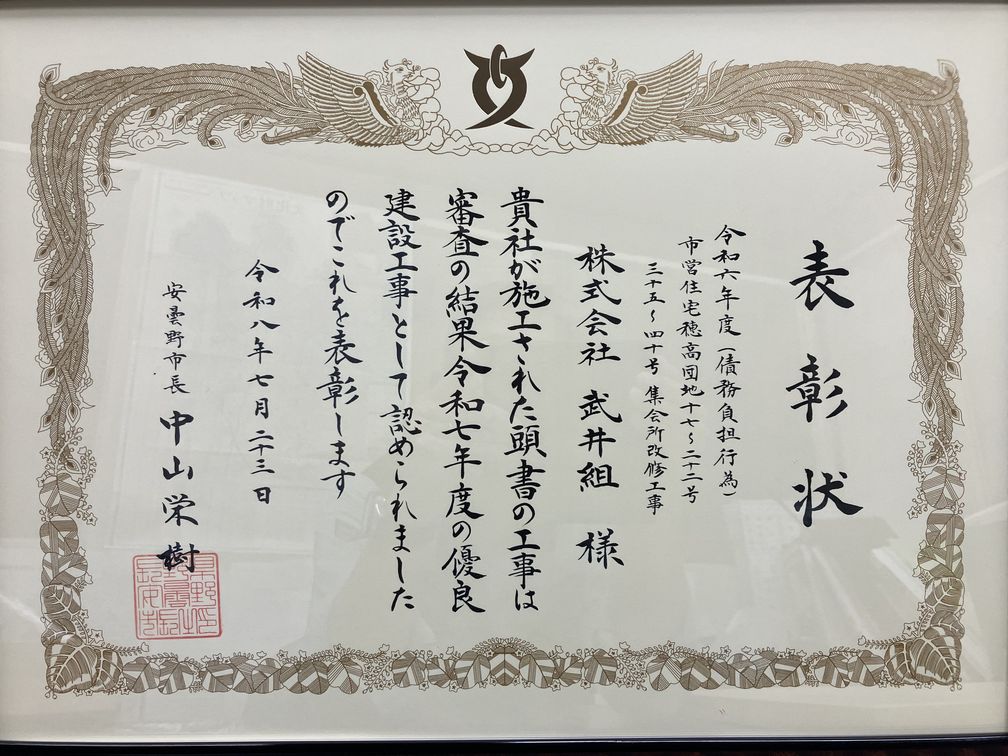 表彰状
令和六年度（債務負担行為）
市営住宅穂高団地十七～二十二号
三十五～四十号 集会所改修工事
株式会社 武井組 様
貴社が施工された頭書の工事は
審査の結果令和七年度の優良
建設工事として認められました
のでこれを表彰します
令和八年七月二十三日
安曇野市長 中山栄樹